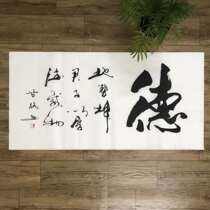 德
地势坤
君子以厚
德载物